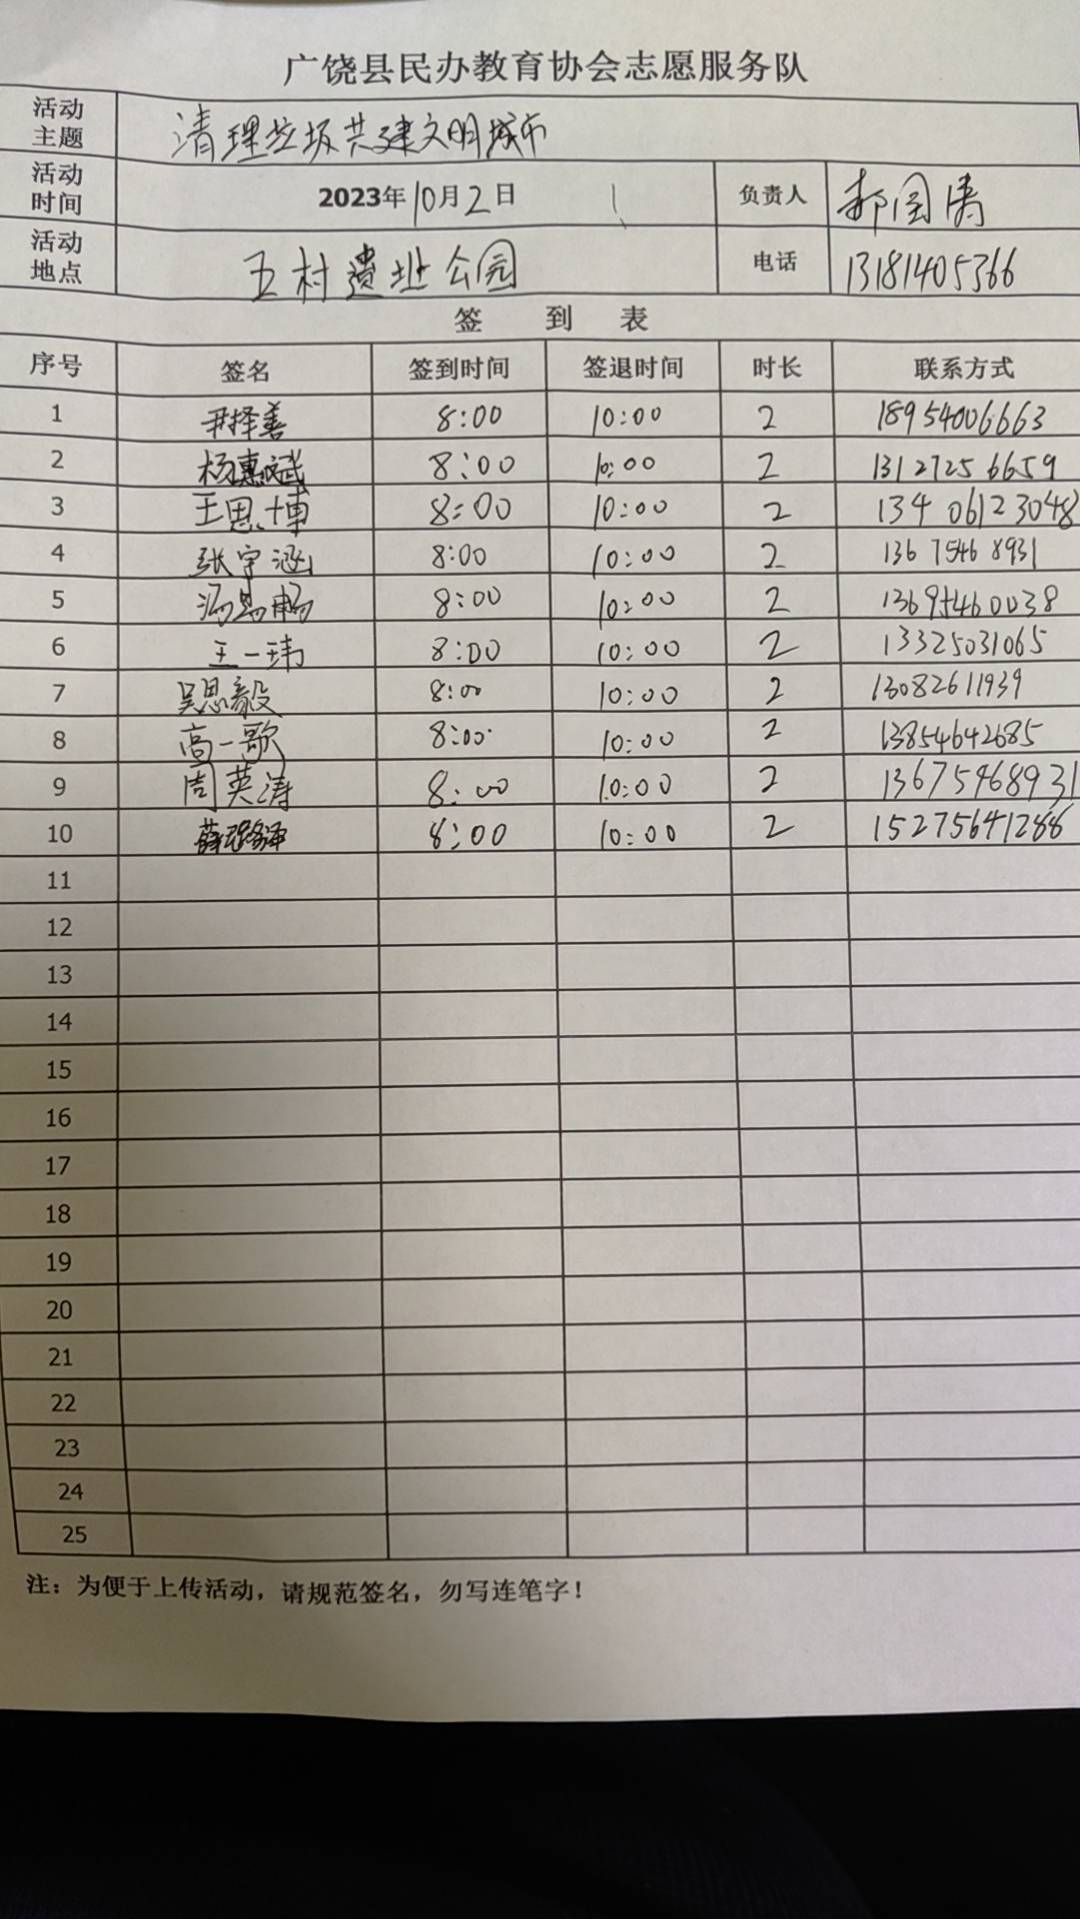 广饶县民办教育协会志愿服务队
活动主题 清理垃圾共建文明城市
活动时间 2023年10月2日 负责人 郝国涛
活动地点 五村遗址公园 电话 13181405366
签 到 表
序号 签名 签到时间 签退时间 时长 联系方式
1 尹择善 8:00 10:00 2 18954006663
2 杨惠斌 8:00 10:00 2 13127256659
3 王思博 8:00 10:00 2 13406123048
4 张宇涵 8:00 10:00 2 13675468931
5 8:00 10:00 2 13695460038
6 王一玮 8:00 10:00 2 13325031065
7 吴思毅 8:00 10:00 2 13082611939
8 高一歌 8:00 10:00 2 13854642685
9 周英涛 8:00 10:00 2 13675468931
10 8:00 10:00 2 15275641288
11
12
13
14
15
16
17
18
19
20
21
22
23
24
25
注：为便于上传活动，请规范签名，勿写连笔字！